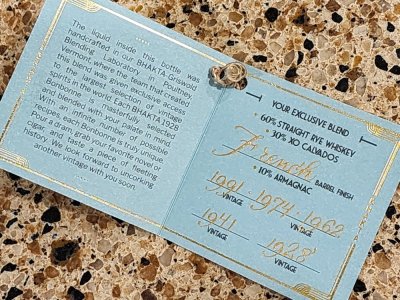 The liquid inside this bottle was
handcrafted in our BHAKTA Griswold
Blending Laboratory in Poultney
Vermont, where the team that created
this blend was given exclusive access
to the largest selection of vintage
spirits in the world. Each BHAKTA 1928
Bonbonne is masterfully selected
and blended with your palate in mind.
With an infinite number of possible
recipes, each Bonbonne is truly unique.
Pour a dram, grab your favorite novel or
cigar, and taste a piece of fleeting
history. We look forward to uncorking
another vintage with you soon.
YOUR EXCLUSIVE BLEND
• 60% STRAIGHT RYE WHISKEY
• 30% XO CALVADOS
BARREL FINISH
• 10% ARMAGNAC
1991 · 1974 · 1962
VINTAGE
VINTAGE
1941
1928
VINTAGE
VINTAGE